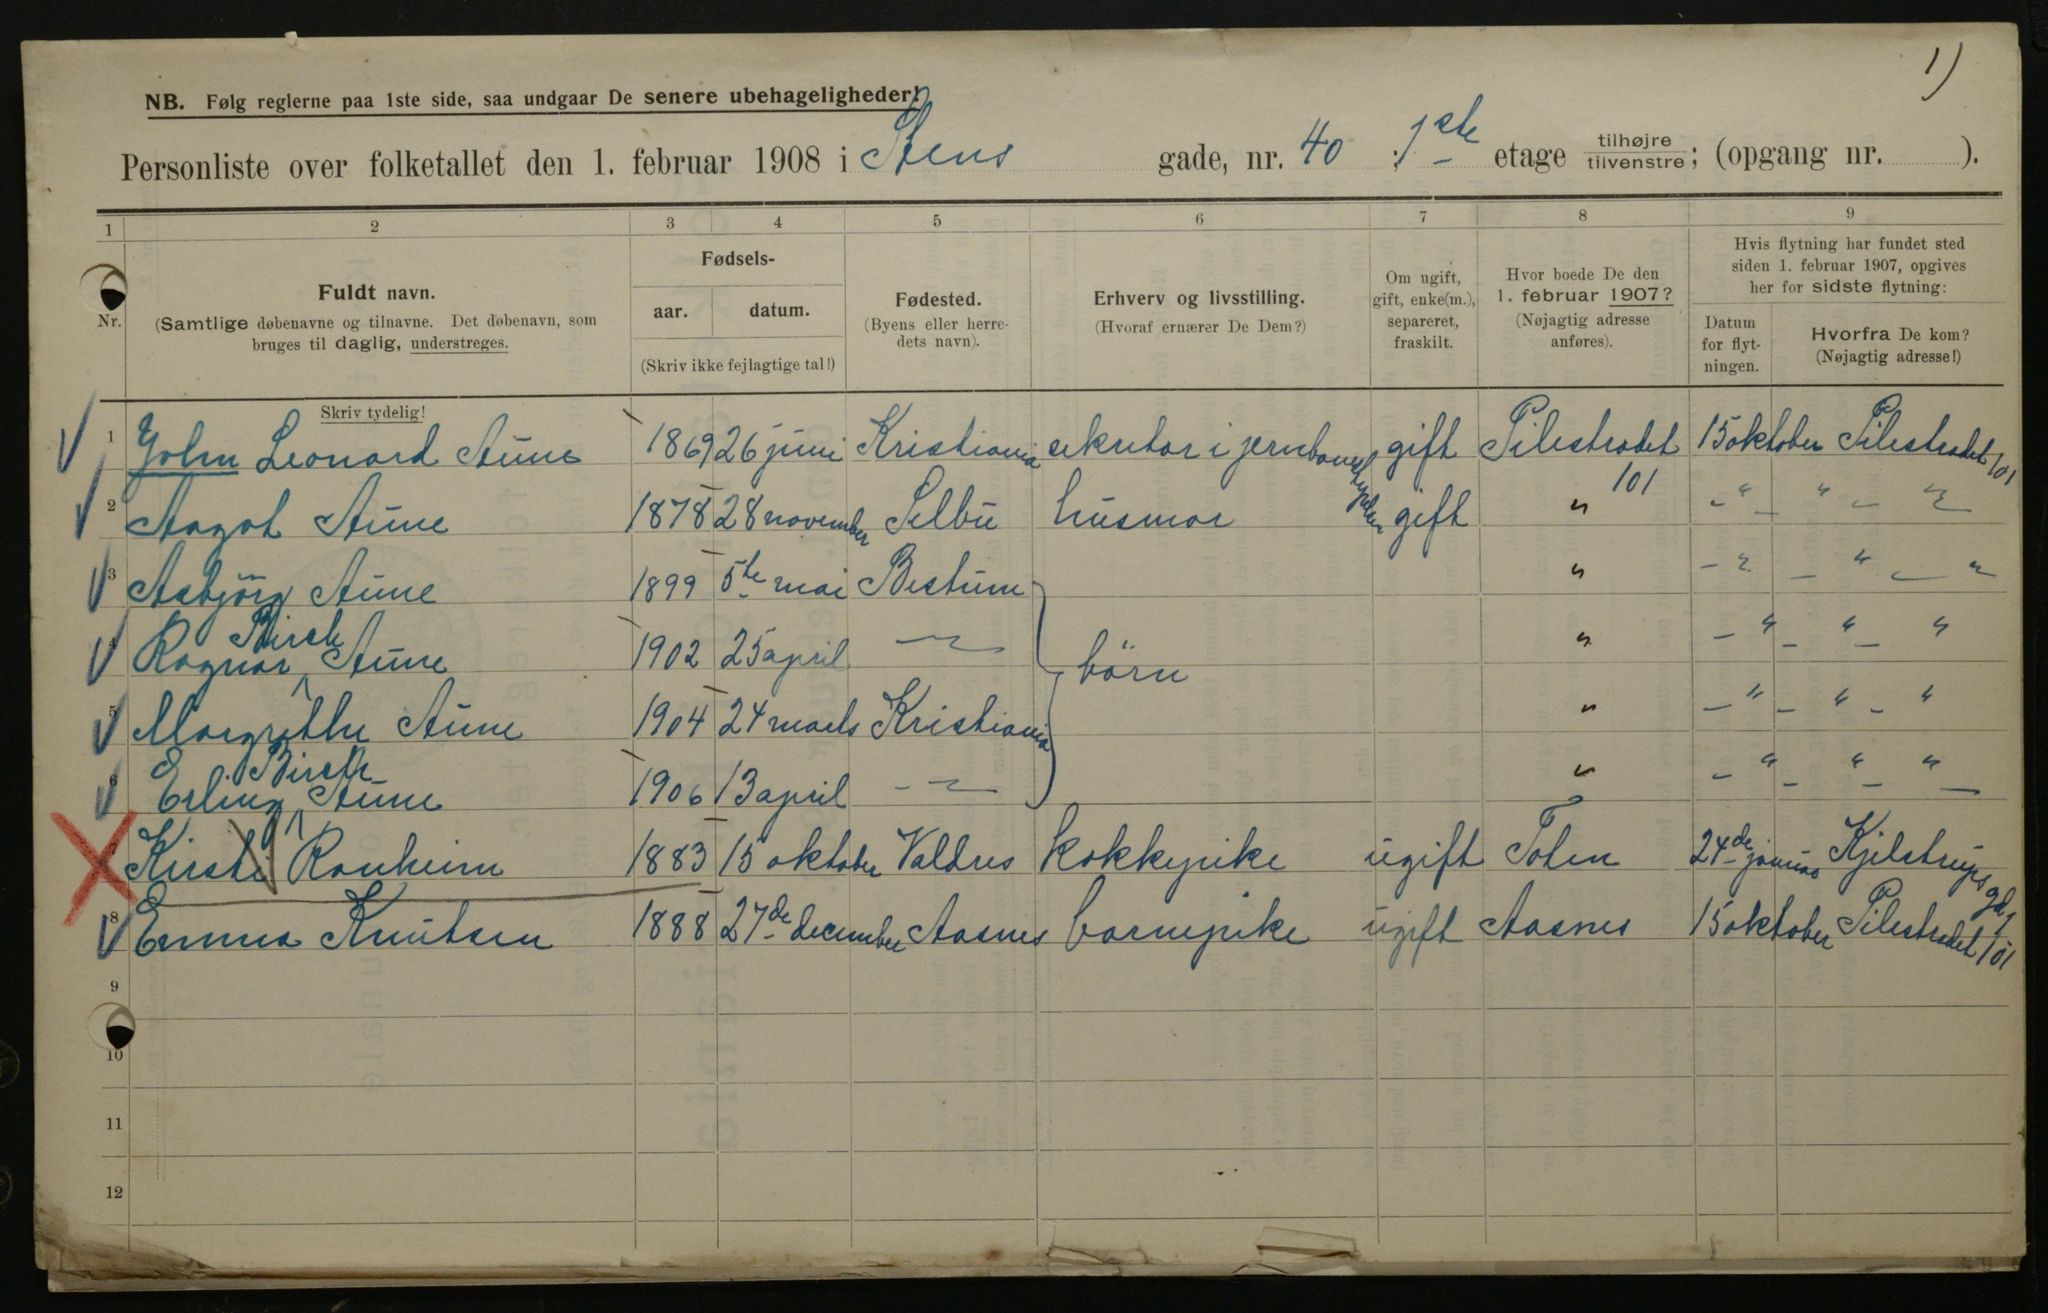 1)
NB. Følg reglerne paa 1ste side, saa undgaar De senere ubehageligheder!
Personliste over folketallet den 1. februar 1908 i Stens gade, nr. 40 ; 1ste etage tilhøjre tilvenstre; (opgang nr. ).
1 2 3 4 5 6 7 8 9
Nr. Fuldt navn. (Samtlige døbenavne og tilnavne. Det døbenavn, som bruges til daglig, understreges.
Fødsels- aar. datum. (Skriv ikke fejlagtige tal!)
Fødested. (Byens eller herredets navn).
Erhverv og livsstilling. (Hvoraf ernærer De Dem?)
Om ugift, gift, enke(m.), separeret, fraskilt.
Hvor boede De den 1. februar 1907? (Nøjagtig adresse anføres).
Hvis flytning har fundet sted siden 1. februar 1907, opgives her for sidste flytning:
Datum for flytningen. Hvorfra De kom? (Nøjagtig adresse!)
Skriv tydelig!
1 John Leonard Aune 1869 26 juni Kristiania sekretær i jernbanestyrelsen gift Pilestrædet 101 15 oktober Pilestrædet 101
2 Aagot Aune 1878 28 november Selbu husmor gift " - " - " - "
3 Asbjörg Aune 1899 5te mai Bestum " - " - " - "
4 Ragnar Birch Aune 1902 25 april - " - börn " - " - " - "
5 Margrethe Aune 1904 24 marts Kristiania " - " - " - "
6 Erling Birch Aune 1906 13 april - " - " - " - " - " -
7 Kirsti Ranheim 1883 15 oktober Valdres kokkepike ugift Toten 24de januar Kjelstrups gd 1
8 Emma Knutsen 1888 27de december Aasnes barnepike ugift Aasnes 15 oktober Pilestrædet 101
9
10
11
12